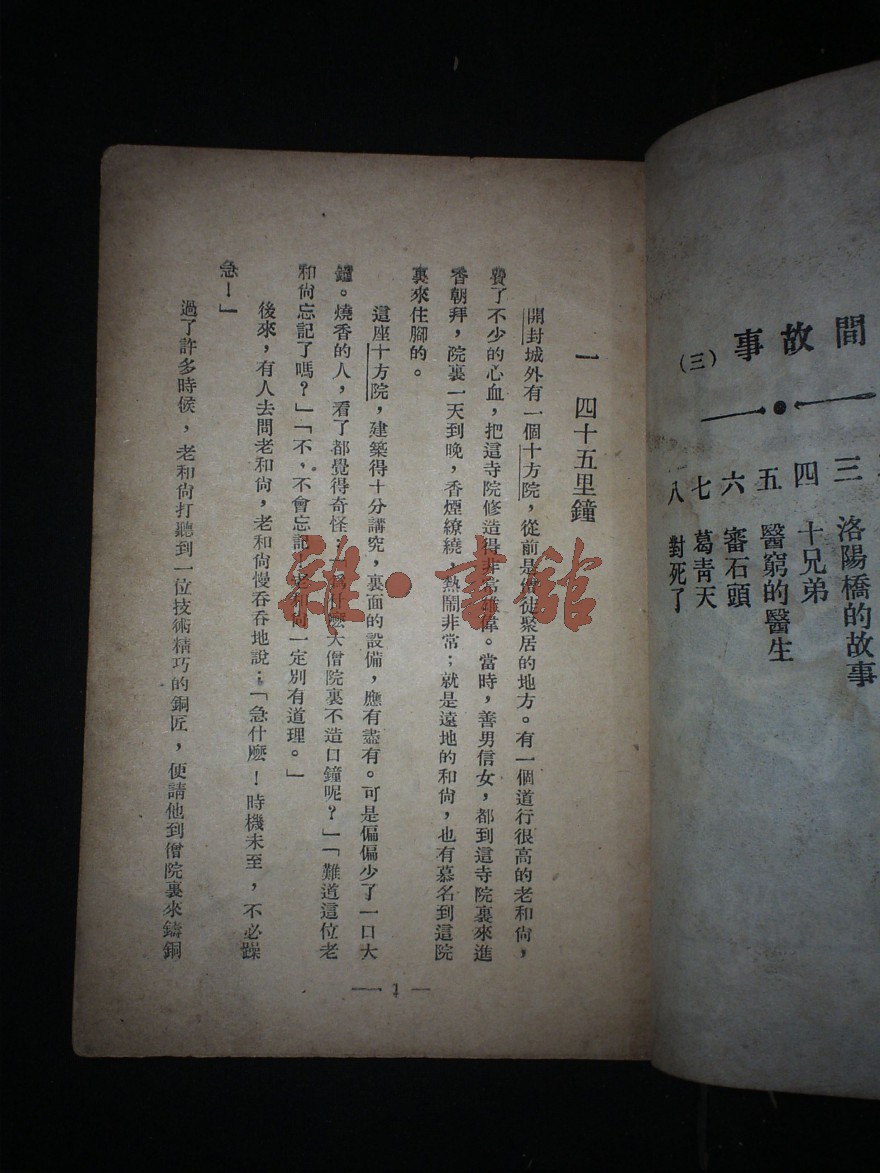 間故事(三)
三 洛陽橋的故事
四 十兄弟
五 醫窮的醫生
六 審石頭
七 葛青天
八 對死了
一 四十五里鐘
開封城外有一個十方院，從前是僧徒聚居的地方。有一個道行很高的老和尙，
費了不少的心血，把這寺院修造得非常雄偉。當時，善男信女，都到這寺院裏來進
香朝拜，院裏一天到晚，香煙繚繞，熱鬧非常；就是遠地的和尙，也有慕名到這院
裏來住腳的。
這座十方院，建築得十分講究，裏面的設備，應有盡有。可是偏偏少了一口大
鐘。燒香的人，看了都覺得奇怪爲什麽大僧院裏不造口鐘呢？」「難道這位老
和尙忘記了嗎？」「不，不會忘記！老和尙一定別有道理。」
後來，有人去問老和尙，老和尙慢吞吞地說：「急什麽！時機未至，不必躁
急！」
過了許多時候，老和尙打聽到一位技術精巧的銅匠，便請他到僧院裏來鑄銅
— 1 —
雜·書館